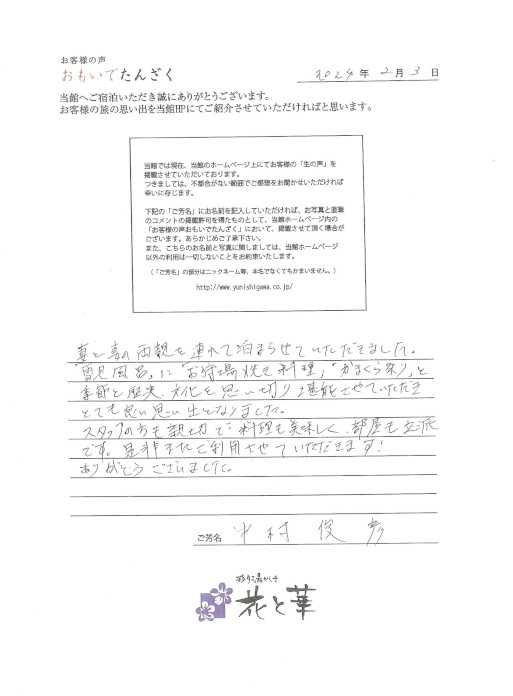 お客様の声
おもいでたんざく
2024年 2月 3日
当館へご宿泊いただき誠にありがとうございます。
お客様の旅の思い出を当館HPにてご紹介させていただければと思います。
当館では現在、当館のホームページ上にてお客様の「生の声」を
掲載させていただいております。
つきましては、不都合がない範囲でご感想をお聞かせいただければ
幸いに存じます。
下記の「ご芳名」にお名前を記入していただければ、お写真と直筆
のコメントの掲載許可を得たものとして、当館ホームページ内の
「お客様の声おもいでたんざく」において、掲載させて頂く場合が
ございます。あらかじめご了承下さい。
また、こちらのお名前と写真に関しましては、当館ホームページ
以外の利用は一切しないことをお約束いたします。
(「ご芳名」の部分はニックネーム等、本名でなくてもかまいません。)
http://www.yunishigawa.co.jp/
妻と妻の両親を連れて泊まらせていただきました。
「雪見風呂」に「お狩場焼き料理」「かまくら祭り」と
季節と歴史、文化を思い切り堪能させていただき
とても良い思い出となりました。
スタッフの方も親切で料理も美味しく、部屋も立派
です。是非またご利用させていただきます!
ありがとうございました。
ご芳名 中村 俊彦
彩り湯かしき
花と華